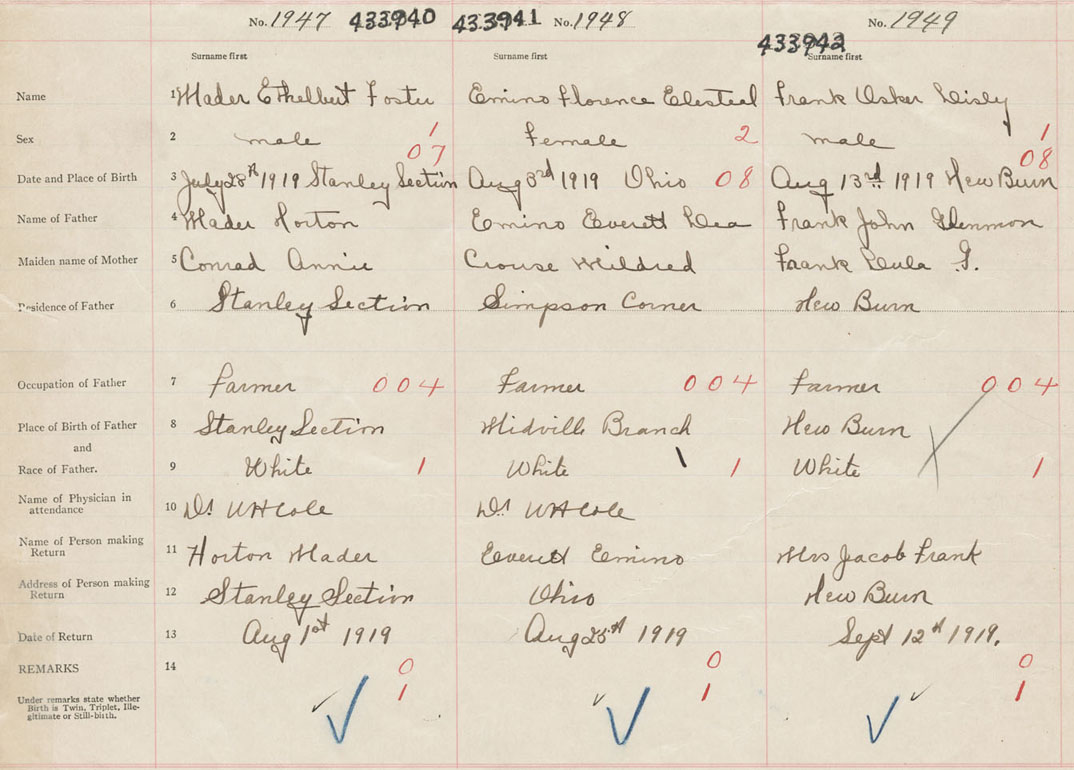 No. 1947 433940 433941 No. 1948 433942 No. 1949
Surname first Surname first Surname first
Name 1 Mader Ethelbert Foster Emino Florence Elesteal Frank Osker Lisly
1 2 1
Sex 2 male Female male
07 08
Date and Place of Birth 3 July 28th 1919 Stanley Section Aug 3rd 1919 Ohio 08 Aug 13rd 1919 New Burn
Name of Father 4 Mader Horton Emino Everett Lea Frank John Glenmon
Maiden name of Mother 5 Conrad Annie Crouse Mildred Frank Lula G.
Residence of Father 6 Stanley Section Simpson Corner New Burn
Occupation of Father 7 Farmer 004 Farmer 004 Farmer 004
Place of Birth of Father 8 Stanley Section Midville Branch New Burn
and
Race of Father. 9 White 1 White 1 White 1
Name of Physician in
attendance 10 Dr WH Cole Dr WH Cole
Name of Person making
Return 11 Horton Mader Everett Emino Mrs Jacob Frank
Address of Person making
Return 12 Stanley Section Ohio New Burn
Date of Return 13 Aug 1st 1919 Aug 25th 1919 Sept 12th 1919.
REMARKS 14 0 0 0
1 1 1
Under remarks state whether
Birth is Twin, Triplet, Ille-
gitimate or Still-birth.